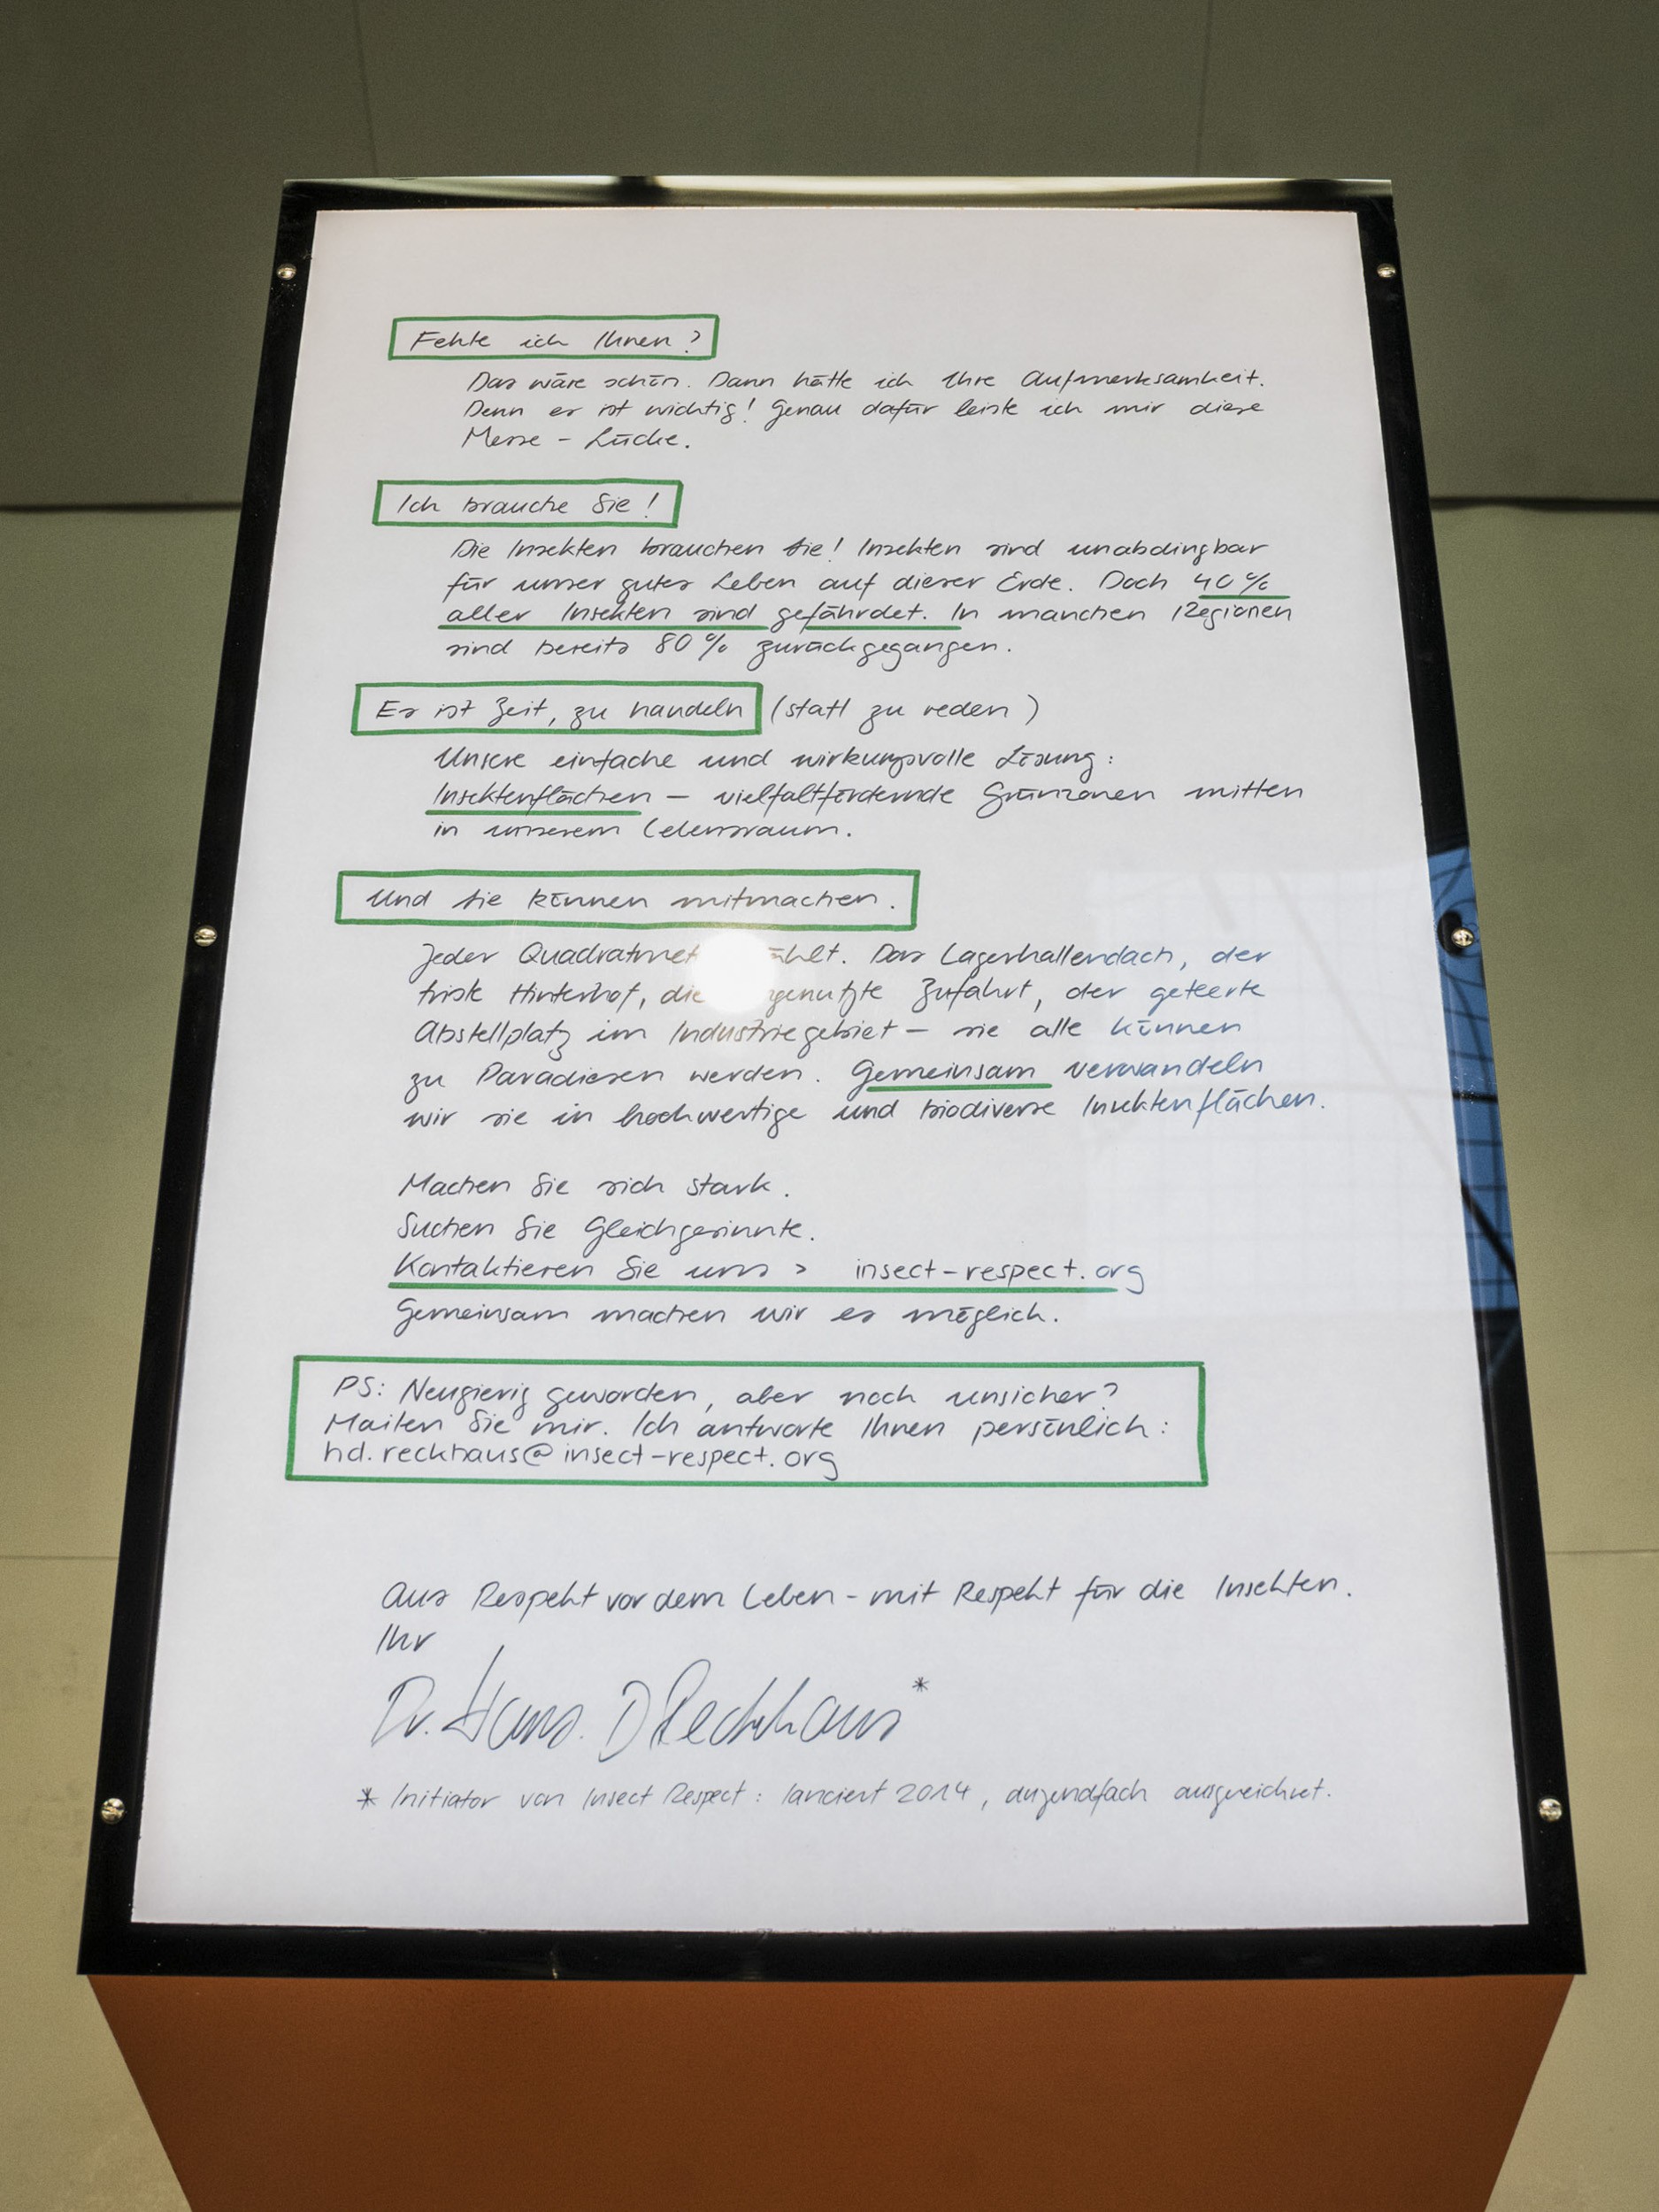 Fehlte ich Ihnen?
Das wäre schön. Dann hätte ich Ihre Aufmerksamkeit.
Denn es ist wichtig! Genau dafür leiste ich mir diese
Messe-Lücke.
Ich brauche Sie!
Die Insekten brauchen Sie! Insekten sind unabdingbar
für unser gutes Leben auf dieser Erde. Doch 40%
aller Insekten sind gefährdet. In manchen Regionen
sind bereits 80% zurückgegangen.
Es ist Zeit, zu handeln (statt zu reden)
Unsere einfache und wirkungsvolle Lösung:
Insektenflächen – vielfaltfördernde Grünzonen mitten
in unserem Lebensraum.
Und Sie können mitmachen.
Jeder Das Lagerhallendach, der
triste Hinterhof, die Zufahrt, der geteerte
Abstellplatz im Industriegebiet – sie alle können
zu Paradiesen werden. Gemeinsam verwandeln
wir sie in hochwertige und biodiverse Insektenflächen.
Machen Sie sich stark.
Suchen Sie Gleichgesinnte.
Kontaktieren Sie uns > insect-respect.org
Gemeinsam machen wir es möglich.
PS: Neugierig geworden, aber noch unsicher?
Mailen Sie mir. Ich antworte Ihnen persönlich:
hd.reckhaus@insect-respect.org
Aus Respekt vor dem Leben – mit Respekt für die Insekten.
Ihr
Dr. Hans-D Reckhaus*
* Initiator von Insect Respect: lanciert 2014, dutzendfach ausgezeichnet.